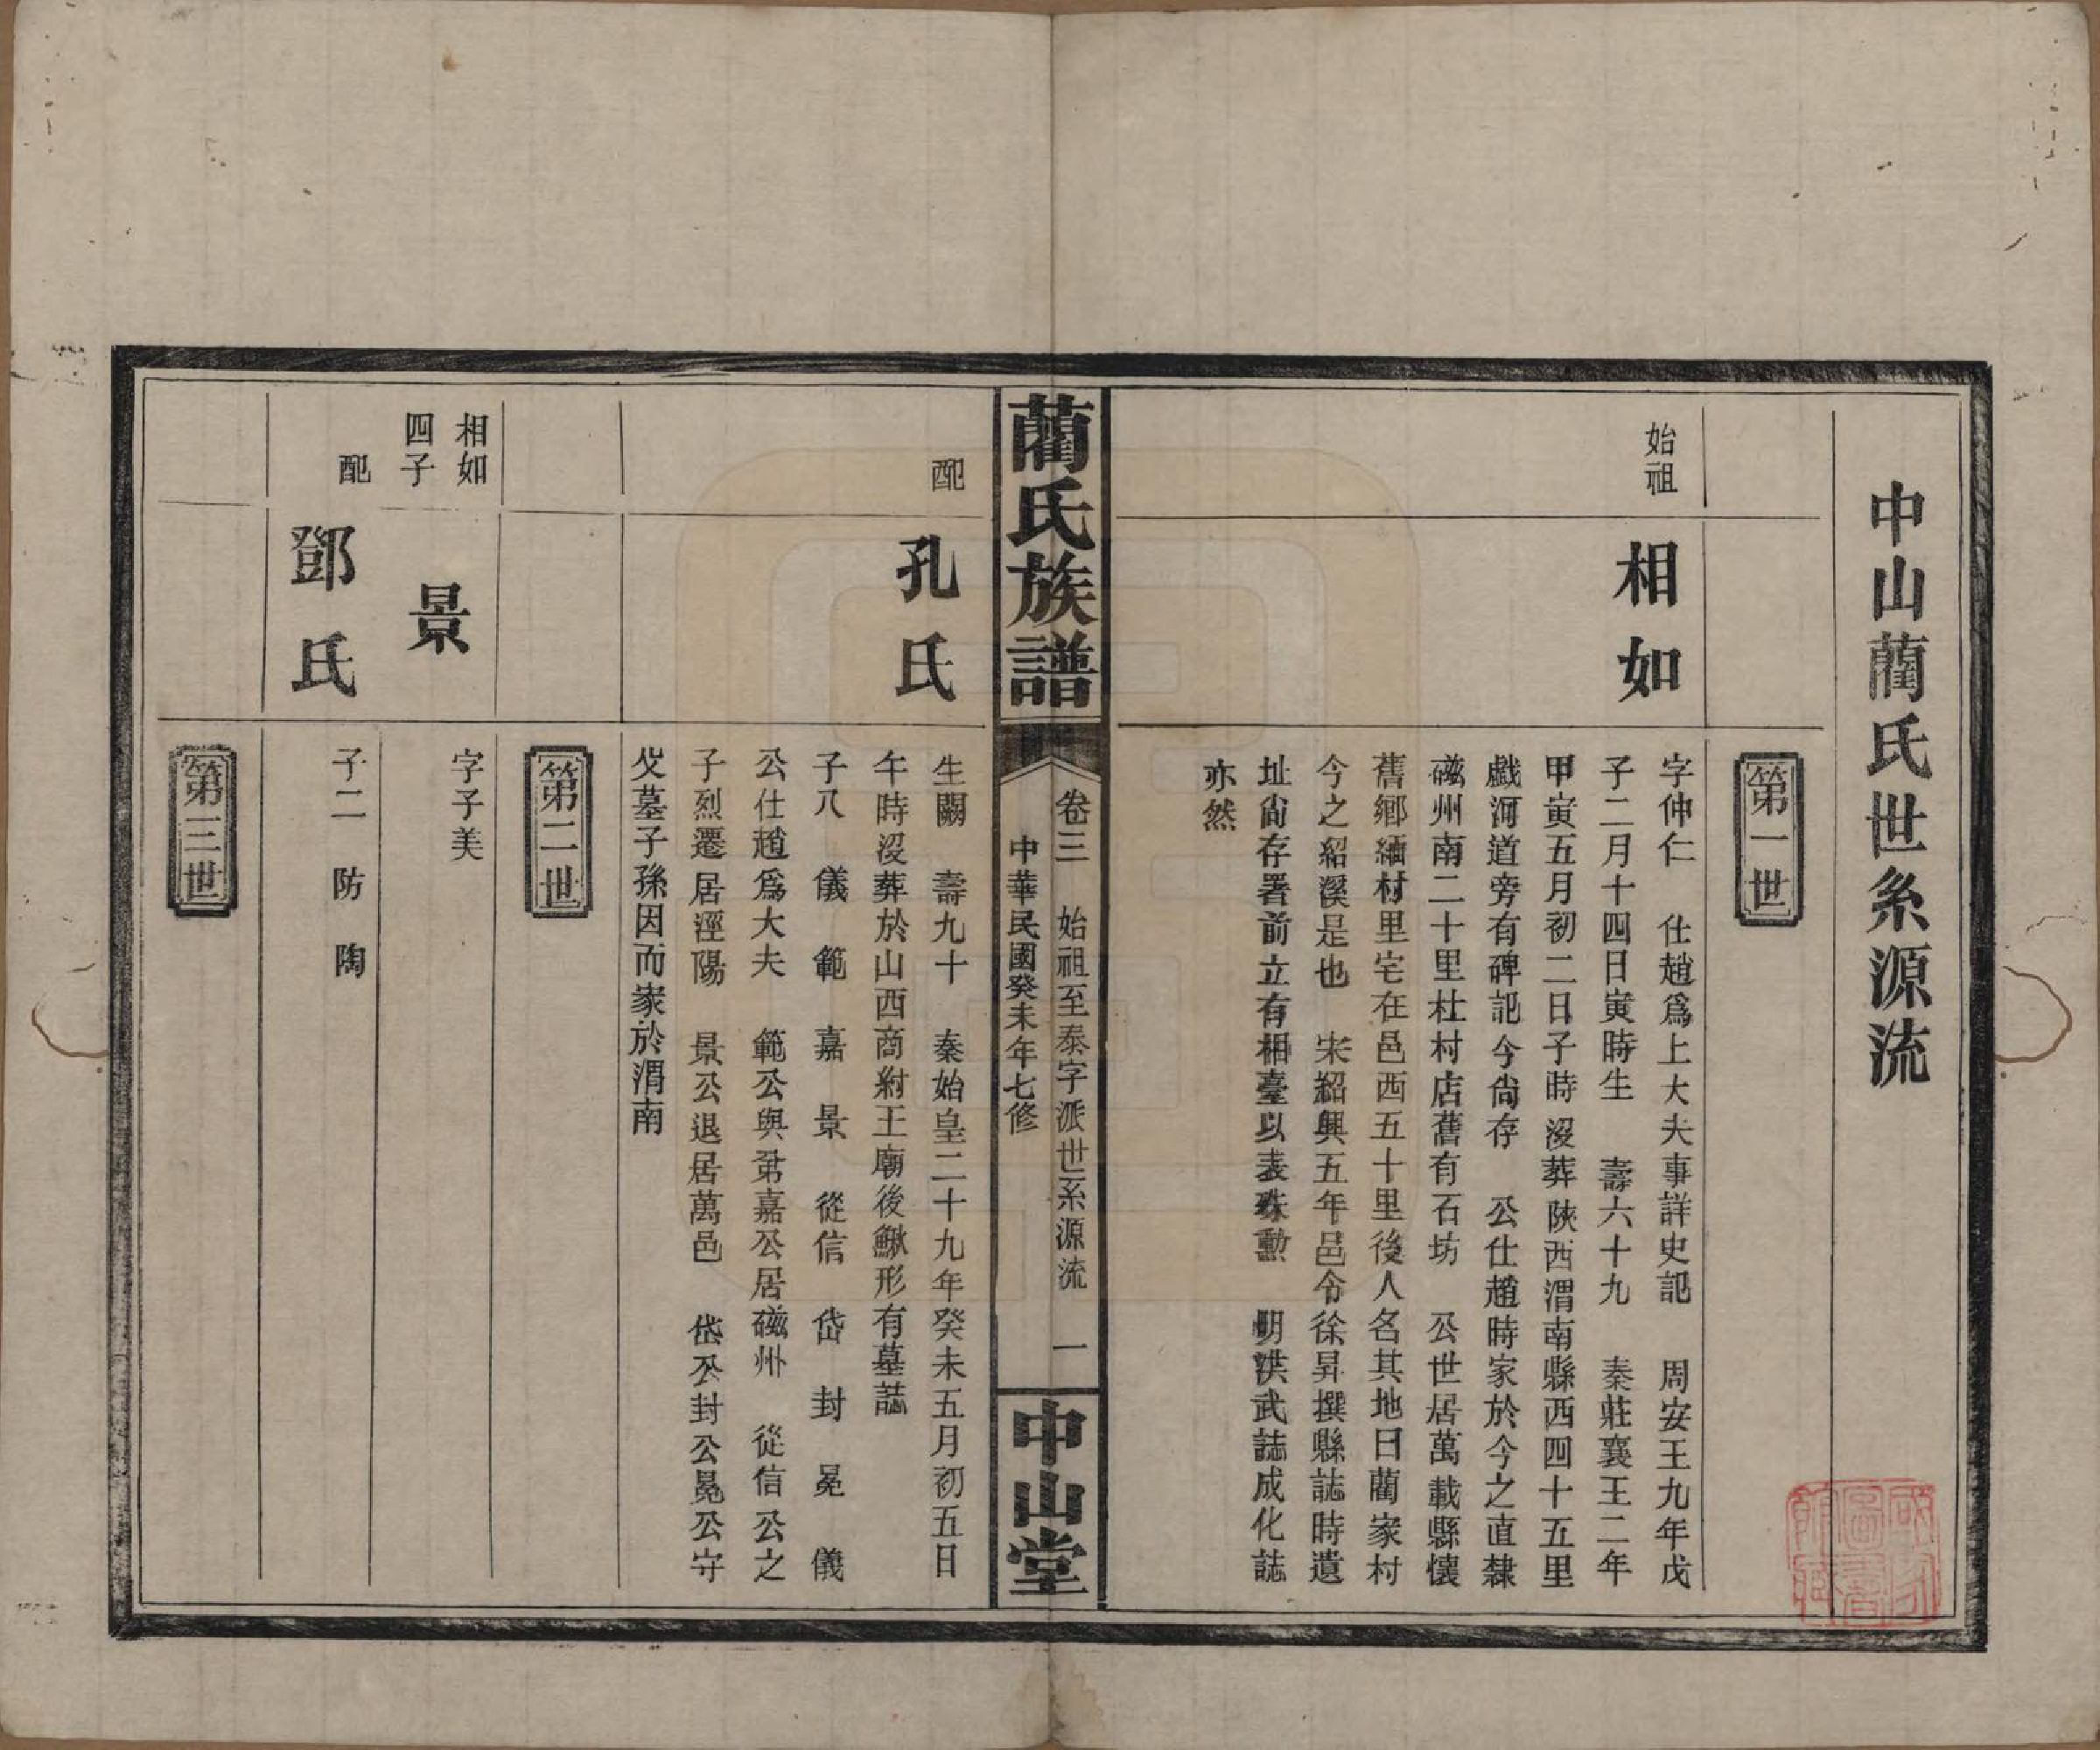 中山藺氏世系源流
第一世
始祖
相如
字仲仁　仕趙爲上大夫事詳史記　周安王九年戊
子二月十四日寅時生　壽六十九　秦莊襄王二年
甲寅五月初二日子時沒葬陝西渭南縣西四十五里
戲河道旁有碑記今尚存　公仕趙時家於今之直隸
磁州南二十里杜村店舊有石坊　公世居萬載縣懷
舊鄉緬村里宅在邑西五十里後人名其地曰藺家村
今之紹溪是也　宋紹興五年邑令徐昇撰縣誌時遺
址尙存署前立有相臺以表殊勳　明洪武誌成化誌
亦然
藺氏族譜
卷三　始祖至泰字派世系源流　一
中華民國癸未年七修
中山堂
配
孔氏
生闕　壽九十　秦始皇二十九年癸未五月初五日
午時沒葬於山西商紂王廟後鰍形有墓誌
子八　儀　範　嘉　景　從信　岱　封　冕　儀
公仕趙爲大夫　範公與弟嘉公居磁州　從信公之
子烈遷居涇陽　景公退居萬邑　岱公封公冕公守
父墓子孫因而家於渭南
第二世
相如
四子
景
字子美
配
鄧氏
子二　防　陶
第三世